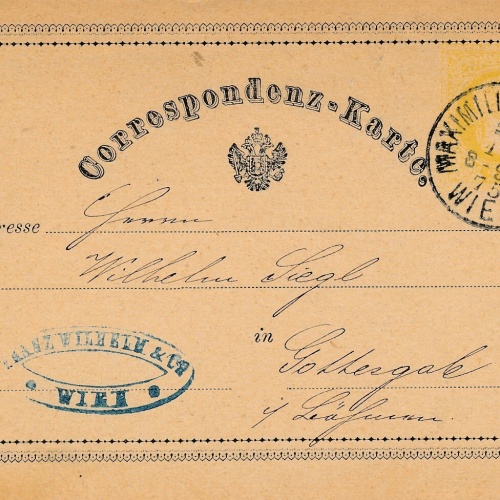 Correspondenz-Karte.
MAXIMILI
8
73
WIE
resse Herrn
Wilhelm Siegl
in Gottesgab
i/ Böhmen.
FRANZ WILHELM & Co
WIEN